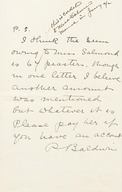 P.S.
I think the sum
owing to Miss Salmond
is 67 piasters, though
in one letter I believe
another amount
was mentioned
but whatever it is
Please pay her if
you have an account
Baldwin